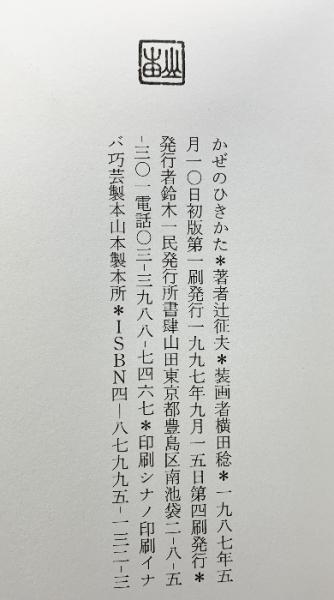 かぜのひきかた＊著者辻征夫＊装画者横田稔＊一九八七年五
月一〇日初版第一刷発行一九九七年九月一五日第四刷発行＊
発行者鈴木一民発行所書肆山田東京都豊島区南池袋二-八-五
-三〇一電話〇三-三九八八-七四六七＊印刷シナノ印刷イナ
バ巧芸製本山本製本所＊ISBN四―八七九九五-一三二-三